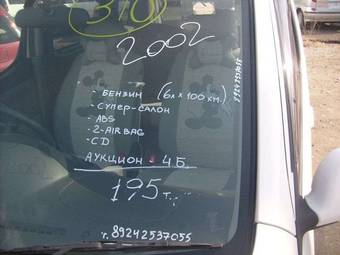 310
2002
- БЕНЗИН (6л х 100 км.)
- СУПЕР-САЛОН
- ABS
- 2-AIR BAG
- CD
АУКЦИОН - 4 Б.
195 т.
т. 89242537055
89242537055